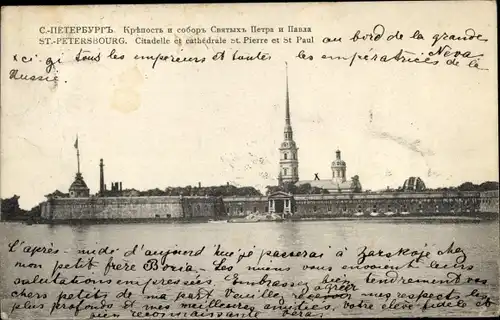 С.-ПЕТЕРБУРГЪ. Крѣпость и соборъ Святыхъ Петра и Павла
ST.-PETERSBOURG. Citadelle et cathédrale St. Pierre et St Paul
au bord de la grande Neva.
"ci gi tous les empereurs et toutes les impératrices de la
Russie.
L'après-midi d'aujourd'hui je passerai à Zarskoje chez
mon petit frère Boria. Les miens vous envoient leurs
salutations empressées. Embrassez bien tendrement vos
chers petits de ma part. Veuillez agréer nos respects les
plus profonds et mes meilleures amitiés, votre élève fidèle et
bien reconnaissante Vera.